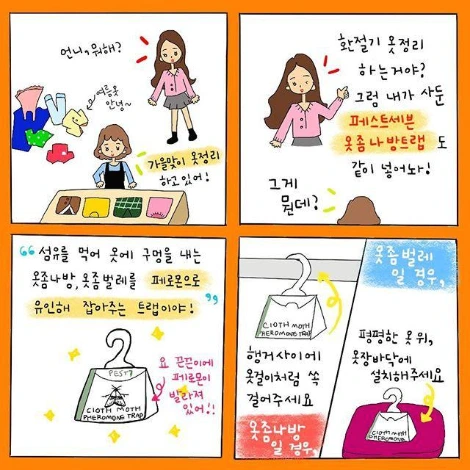 언니, 뭐해?
여름옷
안녕~
가을맞이 옷정리
하고있어!
환절기 옷정리
하는거야?
그럼 내가 사둔
페스트세븐
옷좀나방트랩 도
같이 넣어놔!
그게
뭔데?
“섬유를 먹어 옷에 구멍을 내는
옷좀나방, 옷좀벌레를 페로몬으로
유인해 잡아주는 트랩이야!”
PEST7
CLOTH MOTH
PHEROMONE TRAP
요 끈끈이에
페로몬이
발라져
있어!!
CLOTH MOTH
PHEROMONE TRAP
행거사이에
옷걸이처럼 쏙
걸어주세요
옷좀나방
일 경우,
옷좀벌레
일 경우,
평평한 옷 위,
옷장바닥에
설치해주세요
CLOTH MOTH
PHEROMONE